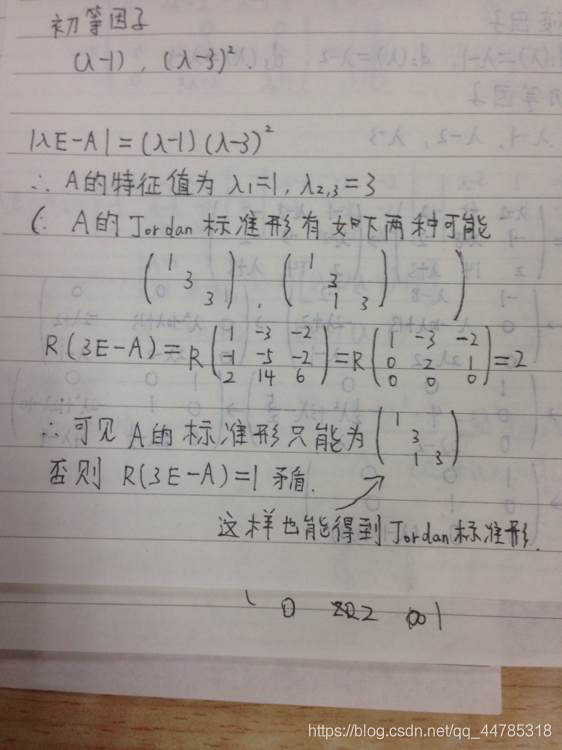 初等因子
(λ-1), (λ-3)².
|λE-A| = (λ-1)(λ-3)²
∴ A的特征值为 λ₁=1, λ₂,₃=3
(∵ A的Jordan标准形有如下两种可能
(1 3 3), (1 3 1 3) )
R(3E-A) = R(1 -3 -2 -1 -5 -2 2 14 6) = R(1 -3 -2 0 2 1 0 0 0) = 2
∴ 可见 A的标准形只能为 (1 3 1 3)
否则 R(3E-A)=1 矛盾.
这样也能得到Jordan标准形.
https://blog.csdn.net/qq_44785318